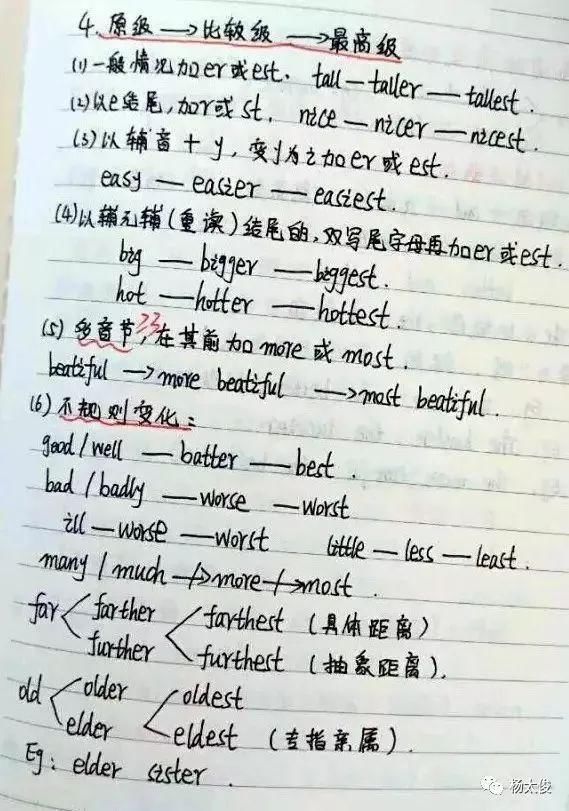 4.原级→比较级→最高级
(1)一般情况加er或est. tall—taller—tallest.
(2)以e结尾,加r或st. nice—nicer—nicest.
(3)以辅音+y,变y为i加er或est.
easy—easier—easiest.
(4)以辅元辅(重读)结尾的,双写尾字母再加er或est.
big—bigger—biggest.
hot—hotter—hottest.
(5)多音节,在其前加more或most.
beatiful→more beatiful→most beatiful.
(6)不规则变化:
good/well—batter—best.
bad/badly—worse—worst
ill—worse—worst little—less—least.
many/much→more→most.
far farther farthest (具体距离)
further furthest (抽象距离).
old older oldest
elder eldest (专指亲属).
Eg: elder sister.
杨太俊